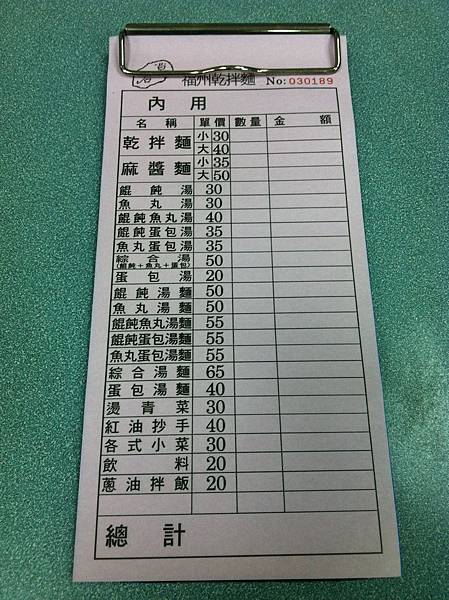 福州乾拌麵 No:030189
內用
名稱 單價 數量 金額
乾拌麵 小 30
大 40
麻醬麵 小 35
大 50
餛飩湯 30
魚丸湯 30
餛飩魚丸湯 40
餛飩蛋包湯 35
魚丸蛋包湯 35
綜合湯 50
(餛飩+魚丸+蛋包)
蛋包湯 20
餛飩湯麵 50
魚丸湯麵 50
餛飩魚丸湯麵 55
餛飩蛋包湯麵 55
魚丸蛋包湯麵 55
綜合湯麵 65
蛋包湯麵 40
燙青菜 30
紅油抄手 40
各式小菜 30
飲料 20
蔥油拌飯 20
總計